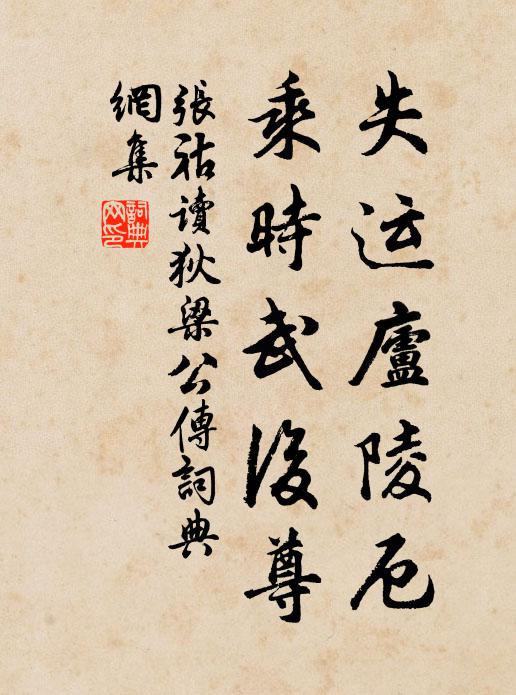 失运廬陵厄
乘時武後尊
張祜讀狄梁公傳詞典
網集
詞典
网印